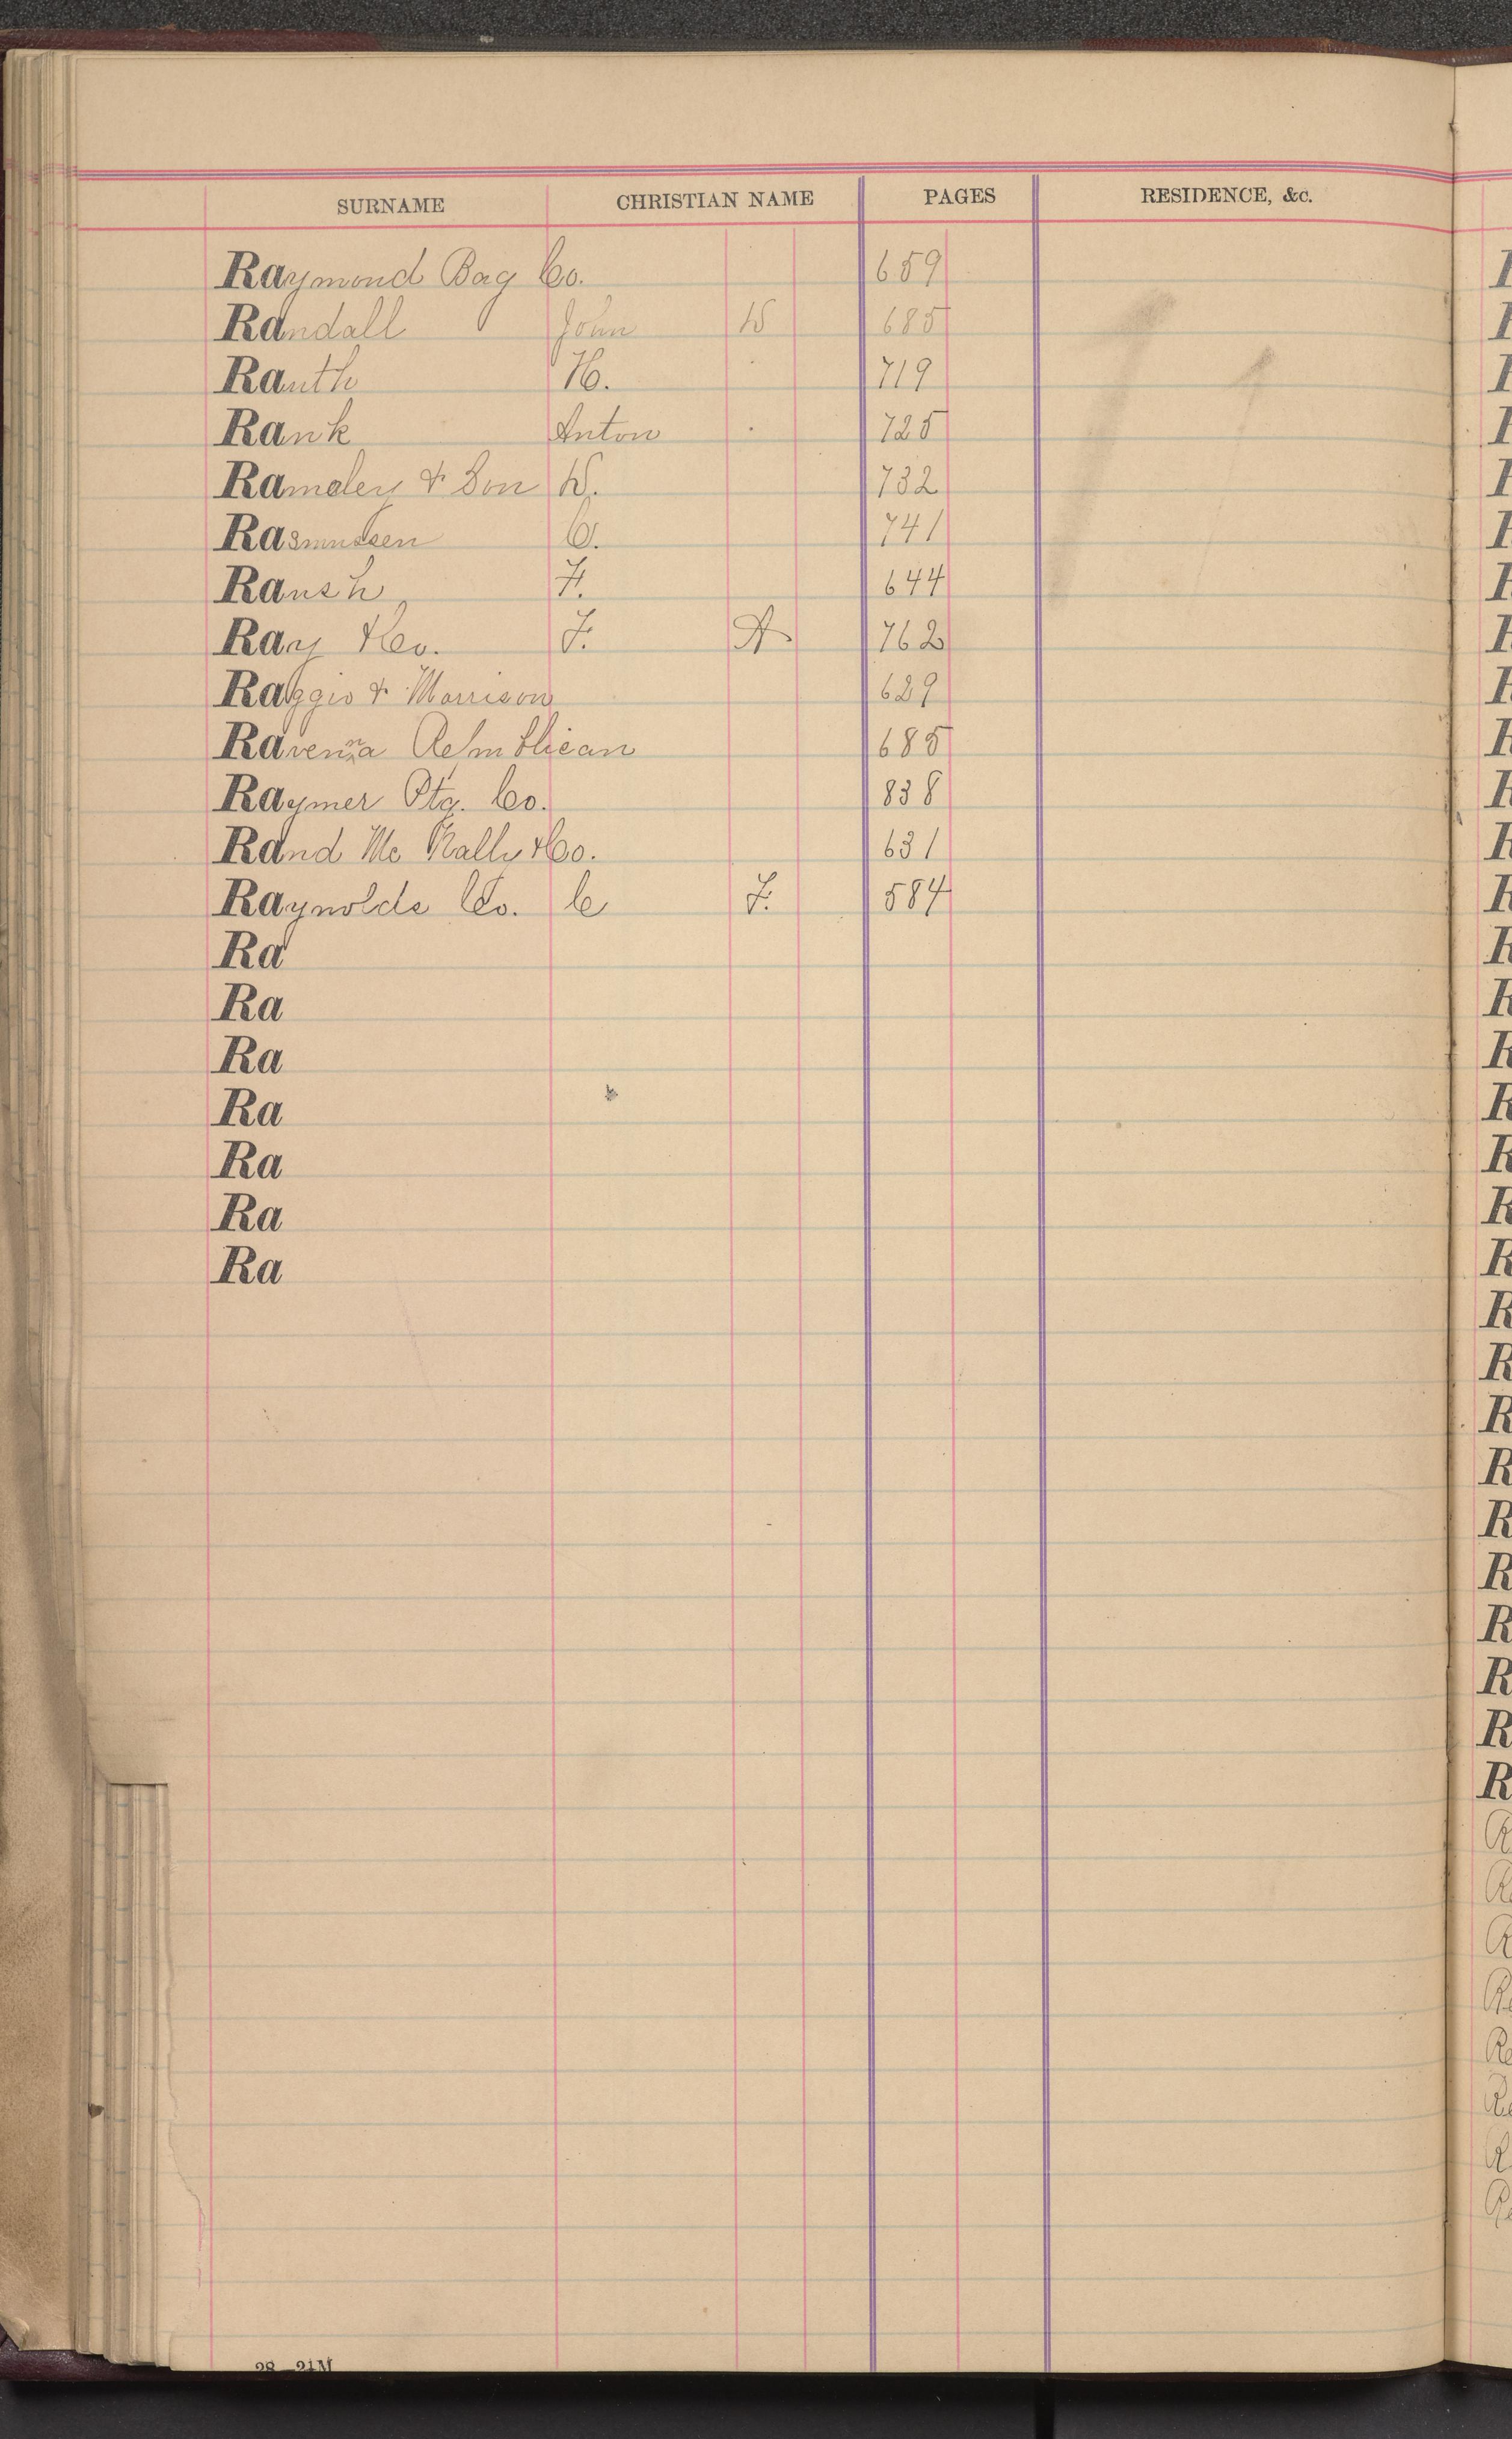 SURNAME CHRISTIAN NAME PAGES RESIDENCE, &c.
Raymond Bag Co. 659
Randall John W 685
Rauth H. 719
Rank Anton 725
Ramaley & Son W. 732
Rasmussen C. 741
Raush F. 644
Ray & Co. F. A 762
Raggio & Morrison 629
Ravenna Republican 685
Raymer Ptg. Co. 838
Rand Mc Nally & Co. 631
Raynolds Co. C F. 584
Ra
Ra
Ra
Ra
Ra
Ra
Ra
28—21M